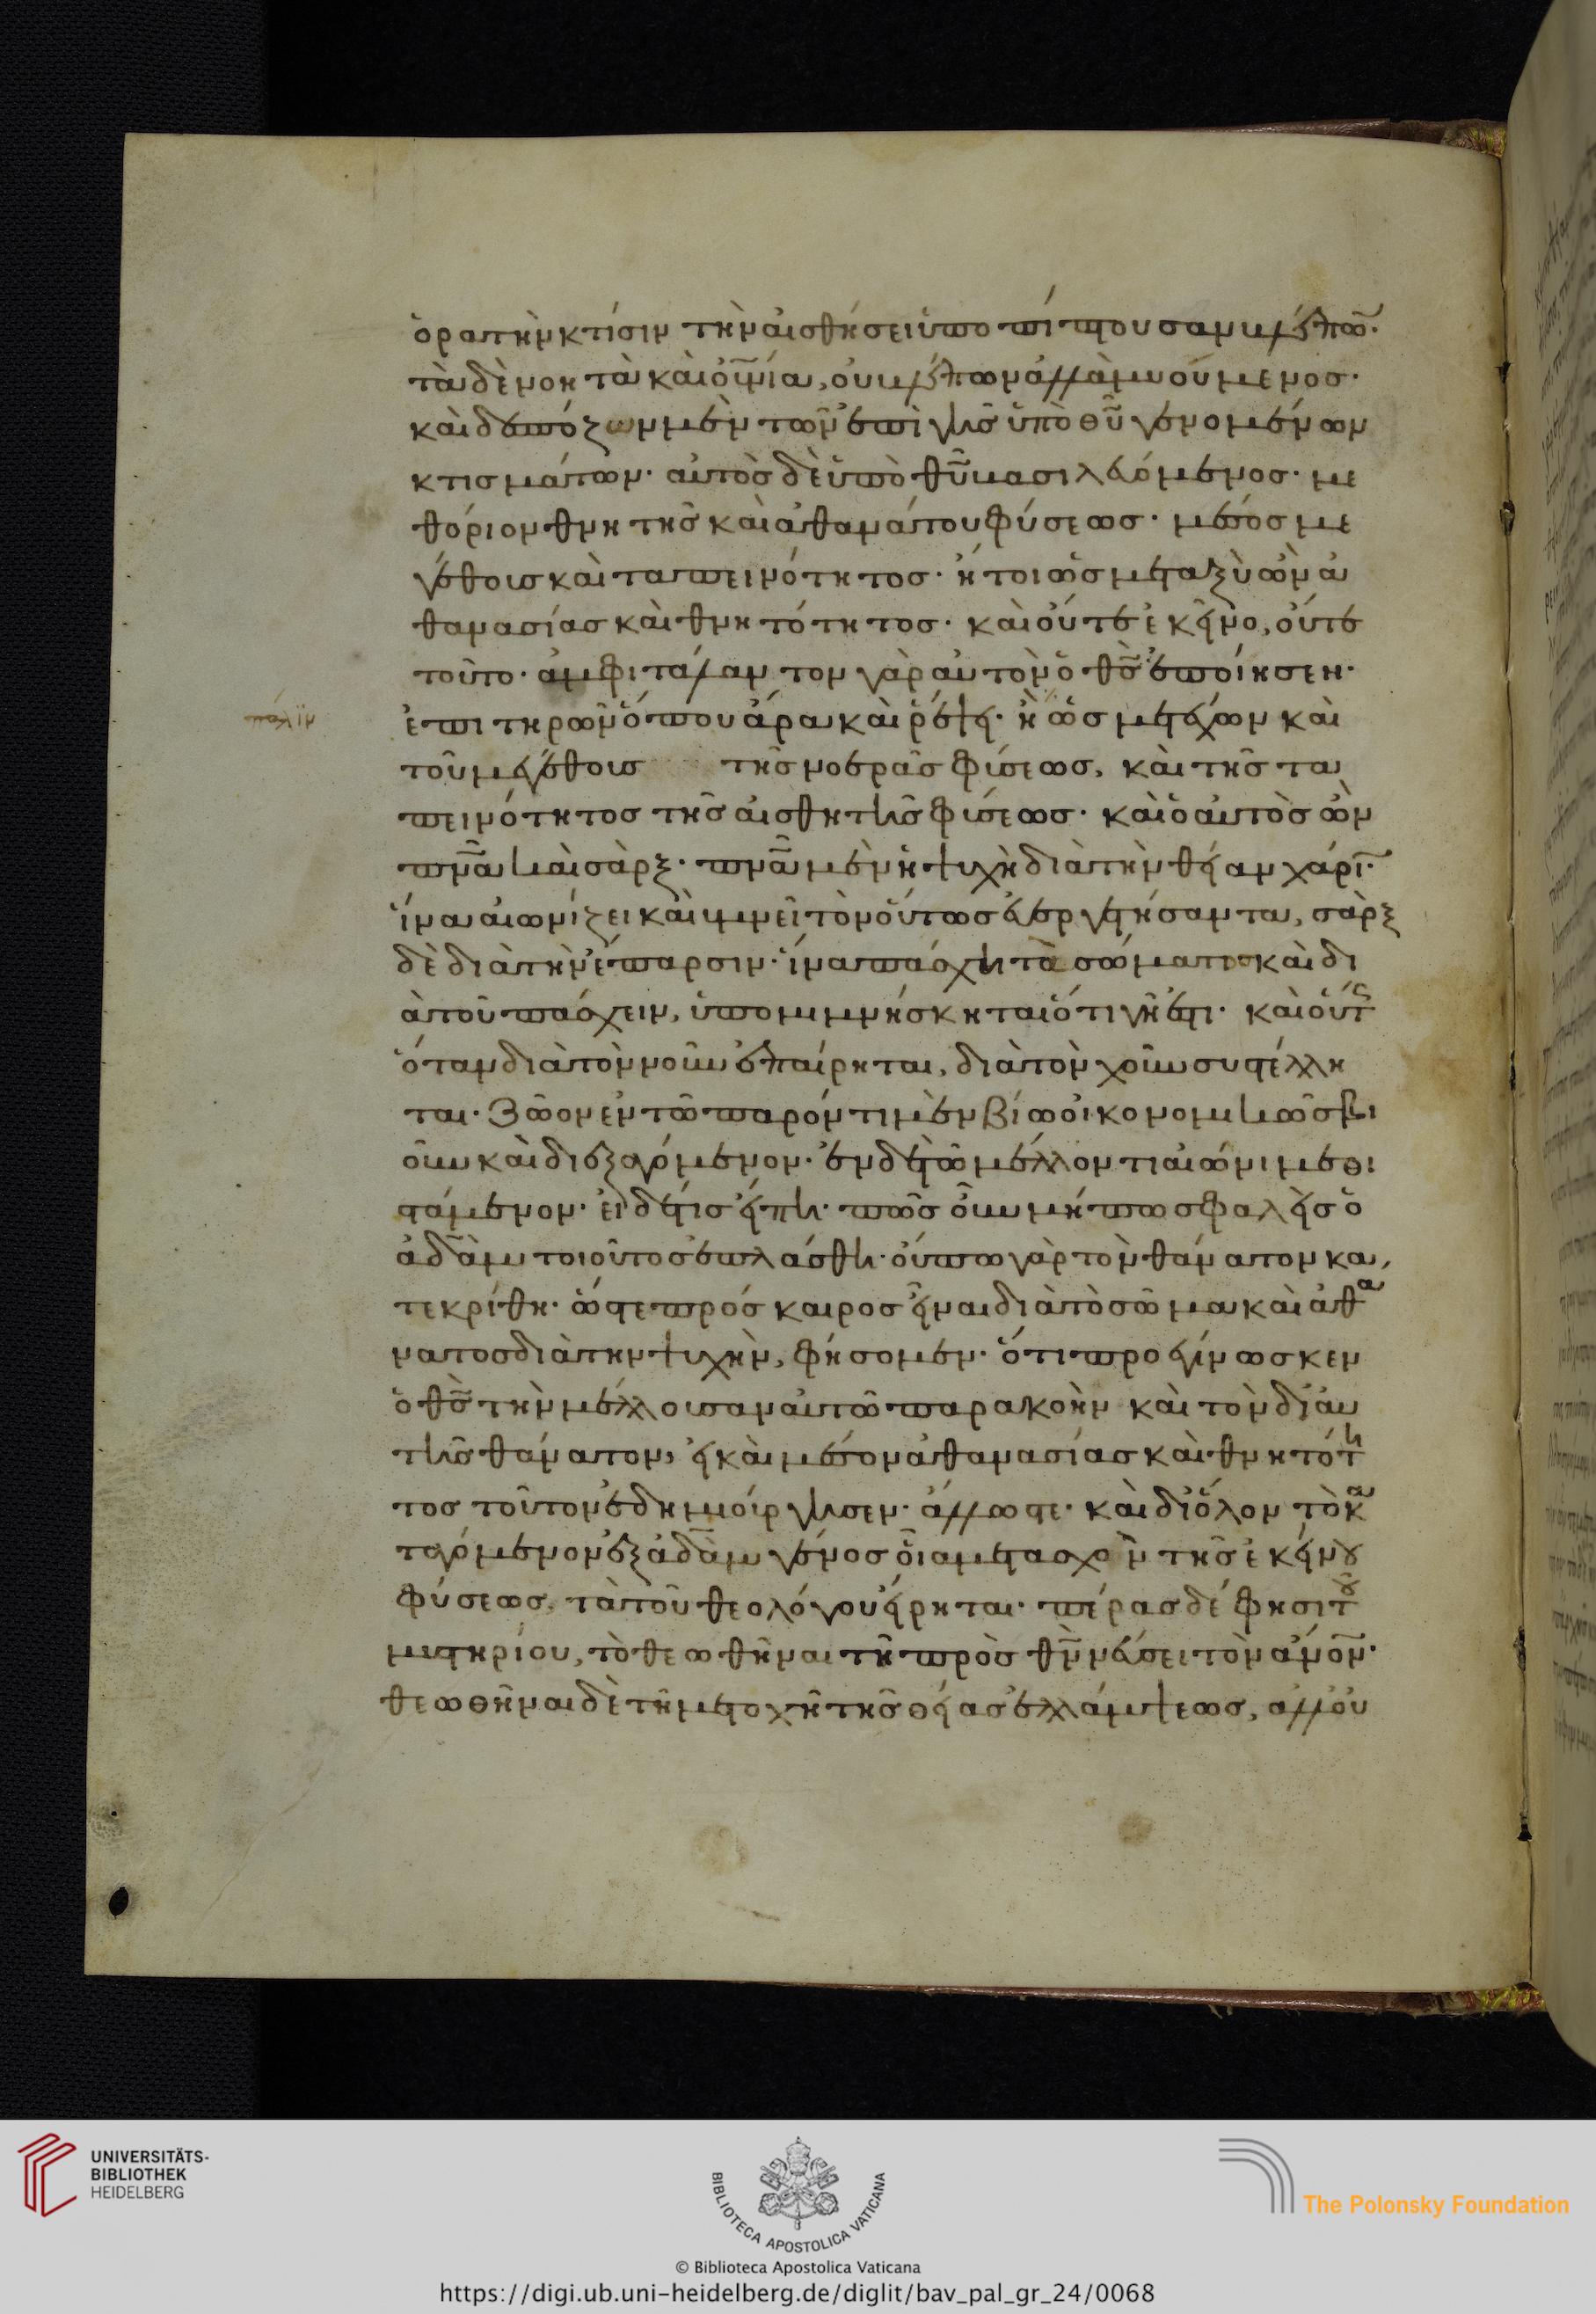 ὁρατὴν κτίσιν τὴν αἰσθήσει ὑποπίπτουσαν βλέπω·
τὰ δὲ νοητὰ καὶ οὐνία, οὐ βλέπων ἀλλὰ μυούμενος·
καὶ δεσπόζων μὲν τῶν ἐπὶ γῆς ὑπὸ θυ γενομένων
κτισμάτων· αὐτὸς δὲ ὑπὸ θυ βασιλευόμενος· με
θόριον θνητῆς καὶ ἀθανάτου φύσεως· μέσος με
γέθους καὶ ταπεινότητος· ἤτοι ὡς μεταξὺ ὢν ἀ
θανασίας καὶ θνητότητος· καὶ οὔτε ἐκεῖνο, οὔτε
τοῦτο· ἀμφιτάλαντον γὰρ αὐτὸν ὁ θς ἐποίησεν·
πάλιν
ἐπιτηρῶν ὅπου ἄρα καὶ ῥέψει· ἢ ὡς μετέχων καὶ
τοῦ μεγέθους τῆς νοερᾶς φύσεως, καὶ τῆς τα
πεινότητος τῆς αἰσθητῆς φύσεως· καὶ ὁ αὐτὸς ὢν
πνα καὶ σὰρξ· πνα μὲν ἡ ψυχὴ διὰ τὴν θείαν χάριν·
ἵνα αἰωνίζει καὶ ὑμνεῖ τὸν οὕτως εὐεργετήσαντα, σὰρξ
δὲ διὰ τὴν ἔπαρσιν· ἵνα πάσχη τὰ σώματος καὶ δι
ὰ τοῦ πάσχειν, ὑπομιμνήσκηται ὅτι γῆ ἐστι· καὶ οὕτ
ὅταν διὰ τὸν νοῦν ἐπαίρηται, διὰ τὸν χοῦν συστέλλη
ται· ζῶον ἐν τῶ παρόντι μὲν βίω οἰκονομικῶς βι
οῦν καὶ διεξαγόμενον· ἐν δὲ τῶ μέλλοντι αἰῶνι μεθι
στάμενον· εἰ δέ τις εἴπη· πῶς οὖν μήπω σφαλεὶς ὁ
ἀδὰμ τοιοῦτος ἐπλάσθη· οὔπω γὰρ τὸν θάνατον κα
τεκρίθη· ὥστε πρόσκαιρος εἶναι διὰ τὸ σῶμα καὶ ἀθα
νατος διὰ τὴν ψυχὴν, φήσομεν· ὅτι προγίνωσκεν
ὁ θς τὴν μέλλουσαν αὐτῶ παρακοὴν καὶ τὸν δι' αὐ
τῆς θάνατον, εἰ καὶ μέσον ἀθανασίας καὶ θνητότη
τος τοῦτον ἐδημιούργησεν· ἄλλως τε· καὶ δι' ὅλον τὸ κα
ταγόμενον ἐξ ἀδὰμ γένος οἷα μετασχὸν τῆς ἐκείνου
φύσεως, τὰ τοῦ θεολόγου εἴρηται· πέρας δέ φησι τοῦ
μυστηρίου, τὸ θεωθῆναι τῆ πρὸς θν νεύσει τὸν ανον·
θεωθῆναι δὲ τῆ μετοχῆ τῆς θείας ἐλλάμψεως, ἀλλ' οὐ
UNIVERSITÄTS-
BIBLIOTHEK
HEIDELBERG
BIBLIOTECA APOSTOLICA VATICANA
© Biblioteca Apostolica Vaticana
The Polonsky Foundation
https://digi.ub.uni-heidelberg.de/diglit/bav_pal_gr_24/0068